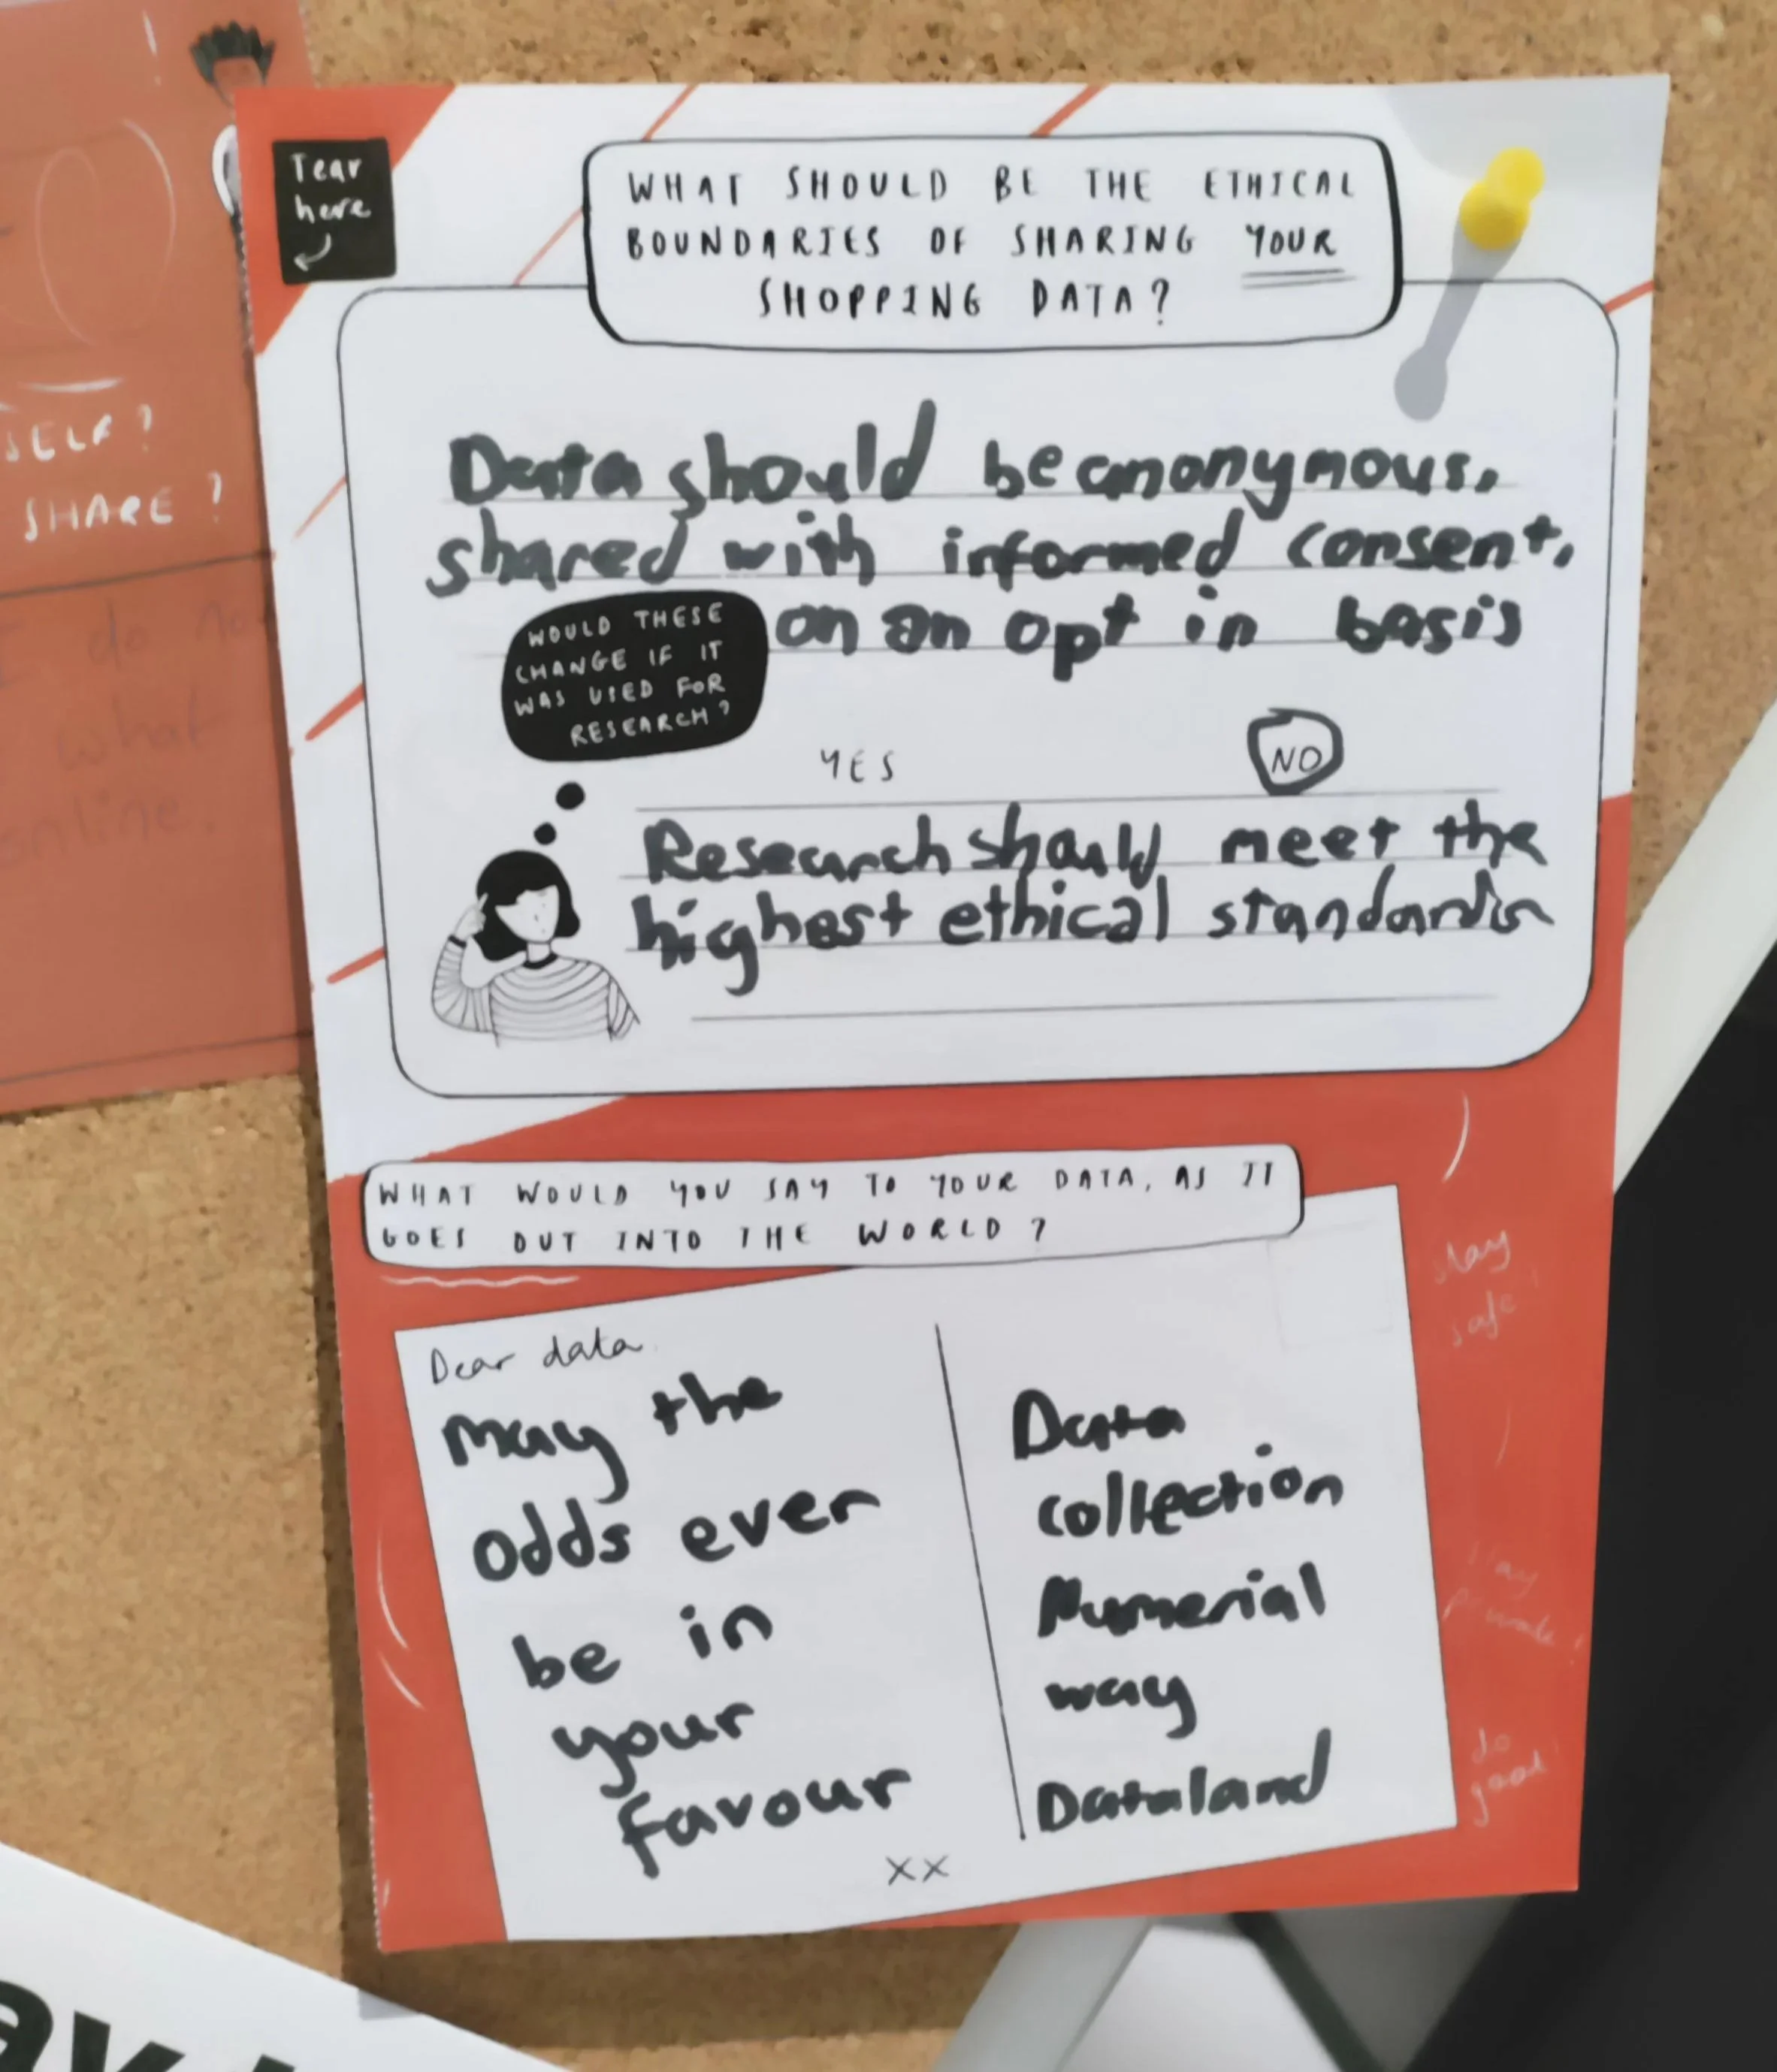 Tear
here
WHAT SHOULD BE THE ETHICAL
BOUNDARIES OF SHARING YOUR
SHOPPING DATA?
Data should be anonymous,
shared with informed consent,
on an opt in basis
WOULD THESE
CHANGE IF IT
WAS USED FOR
RESEARCH?
YES NO
Research should meet the
highest ethical standards
WHAT WOULD YOU SAY TO YOUR DATA, AS IT
GOES OUT INTO THE WORLD?
Dear data
May the
odds ever
be in
your
favour
xx
Data
collection
Numerial
way
Dataland
stay
safe!
stay
private!
do
good!
SELF?
SHARE?
I do not
what
online.